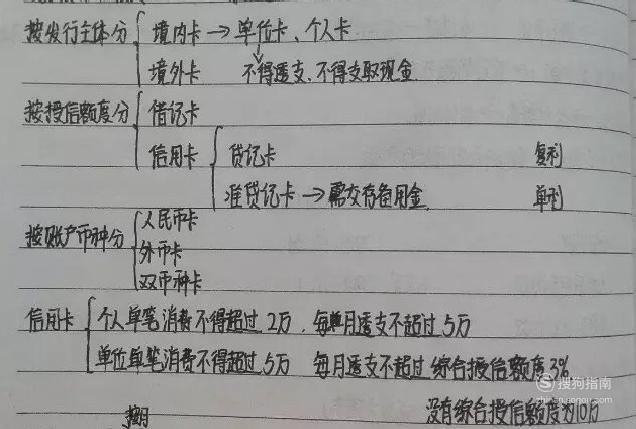 按发行主体分 境内卡→单位卡、个人卡
境外卡 不得透支、不得支取现金
按授信额度分 借记卡
信用卡 贷记卡 复利
准贷记卡→需交存备用金 单利
按账户币种分 人民币卡
外币卡
双币种卡
信用卡 个人单笔消费不得超过2万,每月透支不超过5万
单位单笔消费不得超过5万 每月透支不超过综合授信额度3%
按月 没有综合授信额度为10万
搜狗指南
zhinan.sogou.com